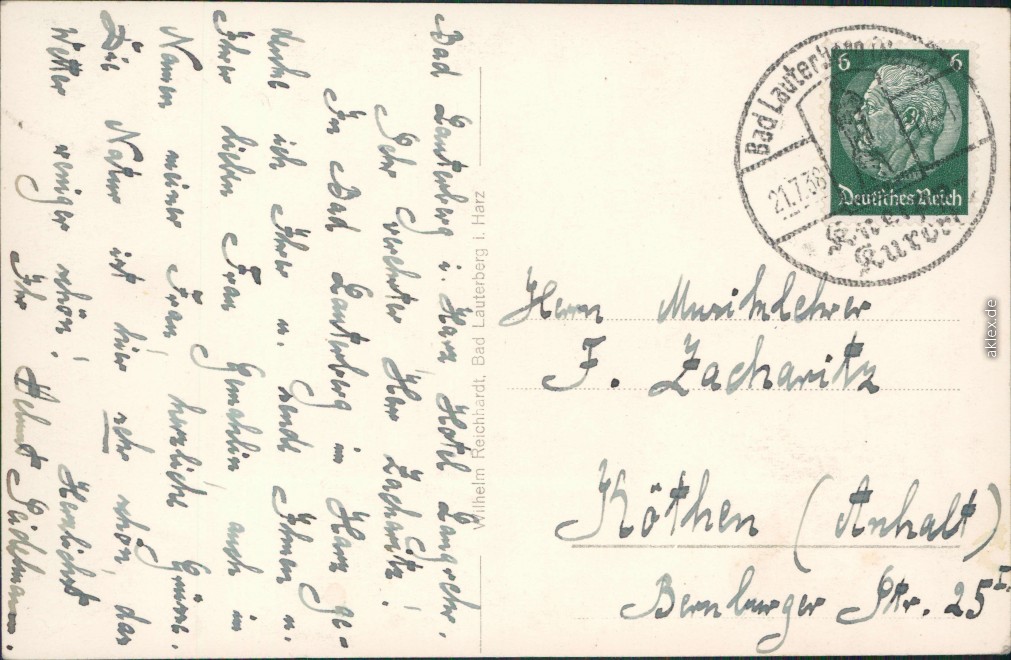 Bad Lauterberg i. Harz Hotel Langrehr.
Sehr geehrter Herr Zacharitz!
In Bad Lauterberg im Harz ge-
denke ich Ihrer u. sende Ihnen u.
Ihrer lieben Frau Gemahlin auch im
Namen meiner Frau herzliche Grüsse.
Die Natur ist hier sehr schön, das
Wetter weniger schön! Herzlichst
Ihr Helmut
Wilhelm Reichhardt, Bad Lauterberg i. Harz
Bad Lauterberg
21.7.38
Kneipp
Kurort
6 6
Deutsches Reich
Herrn Musiklehrer
F. Zacharitz
Köthen (Anhalt)
Bernburger Str. 25 I.
aklex.de